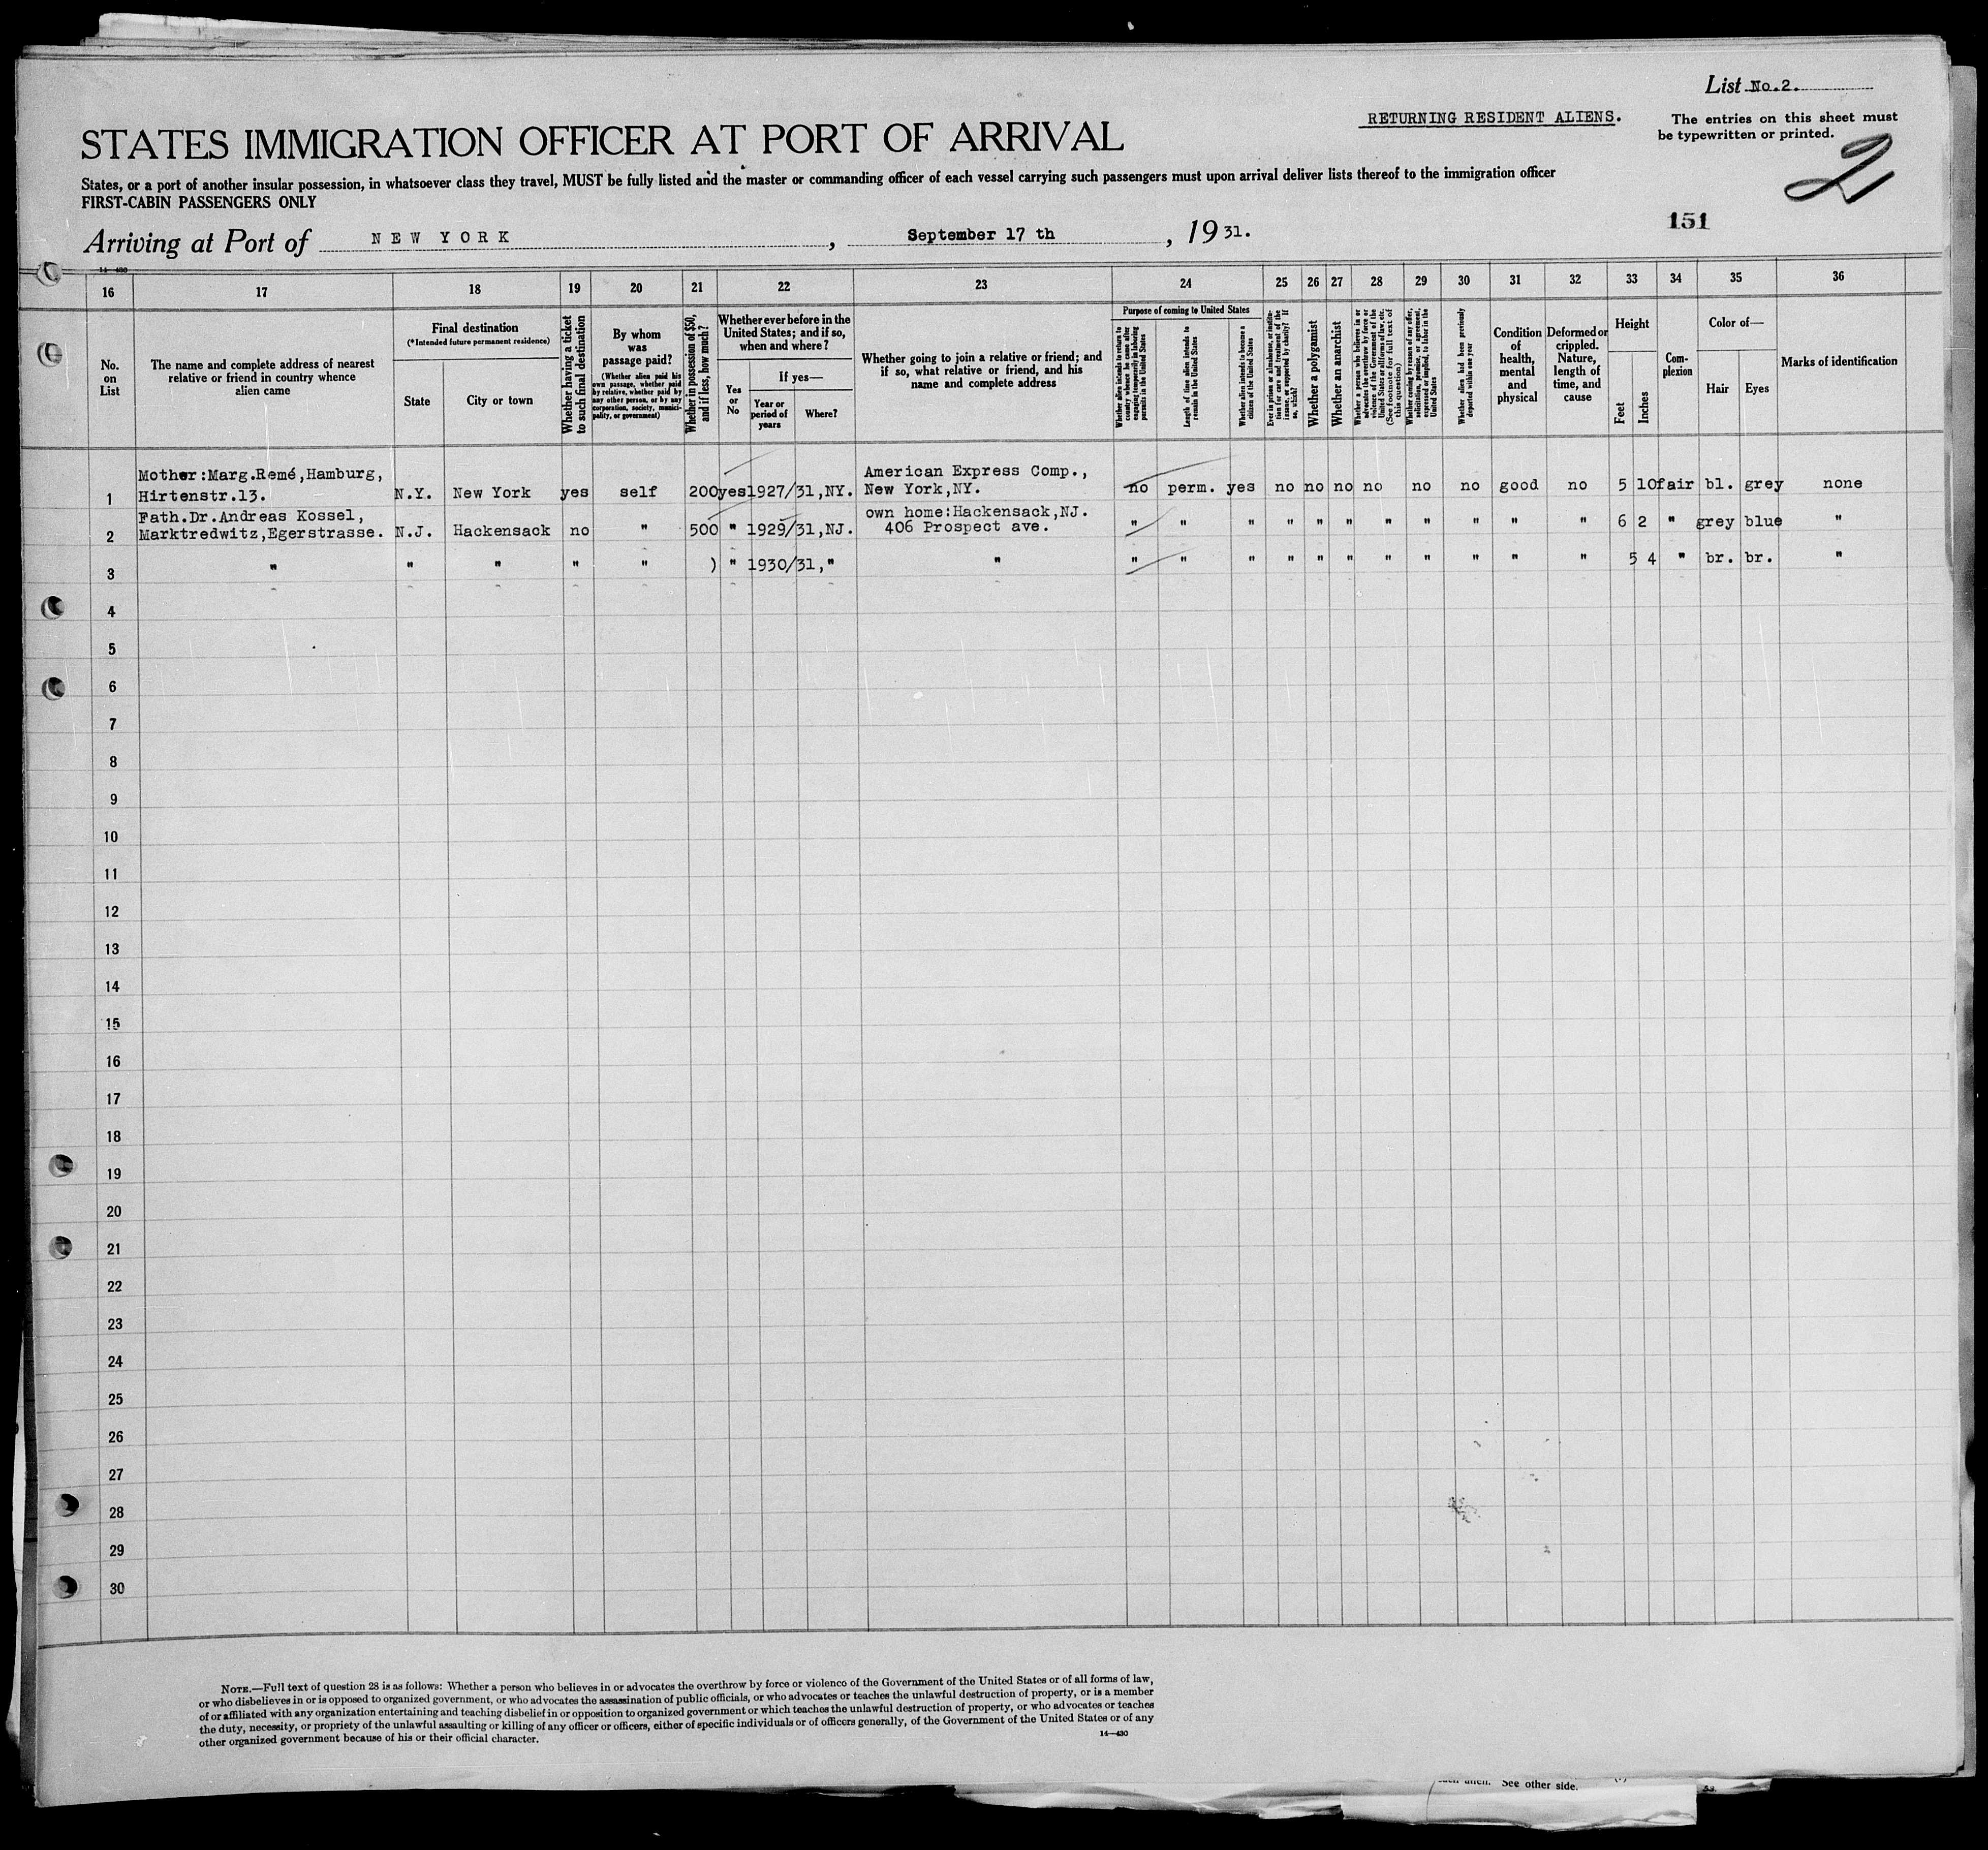 List No.2.
RETURNING RESIDENT ALIENS.
The entries on this sheet must
be typewritten or printed.
2
STATES IMMIGRATION OFFICER AT PORT OF ARRIVAL
States, or a port of another insular possession, in whatsoever class they travel, MUST be fully listed and the master or commanding officer of each vessel carrying such passengers must upon arrival deliver lists thereof to the immigration officer
FIRST-CABIN PASSENGERS ONLY
151
Arriving at Port of NEW YORK, September 17 th, 1931.
14—430
16 17 18 19 20 21 22 23 24 25 26 27 28 29 30 31 32 33 34 35 36
No. on List
The name and complete address of nearest relative or friend in country whence alien came
Final destination
(*Intended future permanent residence)
State
City or town
Whether having a ticket to such final destination
By whom was passage paid?
(Whether alien paid his own passage, whether paid by relative, whether paid by any other person, or by any corporation, society, municipality, or government)
Whether in possession of $50, and if less, how much?
Whether ever before in the United States; and if so, when and where?
Yes or No
If yes—
Year or period of years
Where?
Whether going to join a relative or friend; and if so, what relative or friend, and his name and complete address
Purpose of coming to United States
Whether alien intends to return to country whence he came after engaging temporarily in laboring pursuits in the United States
Length of time alien intends to remain in the United States
Whether alien intends to become a citizen of the United States
Ever in prison or almshouse, or institution for care and treatment of the insane, or supported by charity? If so, which?
Whether a polygamist
Whether an anarchist
Whether a person who believes in or advocates the overthrow by force or violence of the Government of the United States or all forms of law, etc. (See footnote for full text of this question)
Whether coming by reason of any offer, solicitation, promise, or agreement, expressed or implied, to labor in the United States
Whether alien had been previously deported within one year
Condition of health, mental and physical
Deformed or crippled. Nature, length of time, and cause
Height
Feet
Inches
Complexion
Color of—
Hair
Eyes
Marks of identification
1 Mother:Marg.Remé,Hamburg, Hirtenstr.13. N.Y. New York yes self 200 yes 1927/31,NY. American Express Comp., New York,NY. no perm. yes no no no no no no good no 5 10 fair bl. grey none
2 Fath.Dr.Andreas Kossel, Marktredwitz,Egerstrasse. N.J. Hackensack no " 500 " 1929/31,NJ. own home:Hackensack,NJ. 406 Prospect ave. " " " " " " " " " " " 6 2 " grey blue "
3 " " " " " ) " 1930/31," " " " " " " " " " " " " 5 4 " br. br. "
4
5
6
7
8
9
10
11
12
13
14
15
16
17
18
19
20
21
22
23
24
25
26
27
28
29
30
NOTE.—Full text of question 28 is as follows: Whether a person who believes in or advocates the overthrow by force or violence of the Government of the United States or of all forms of law,
or who disbelieves in or is opposed to organized government, or who advocates the assassination of public officials, or who advocates or teaches the unlawful destruction of property, or is a member
of or affiliated with any organization entertaining and teaching disbelief in or opposition to organized government or which teaches the unlawful destruction of property, or who advocates or teaches
the duty, necessity, or propriety of the unlawful assaulting or killing of any officer or officers, either of specific individuals or of officers generally, of the Government of the United States or of any
other organized government because of his or their official character.
14—430
alien. See other side.
53.